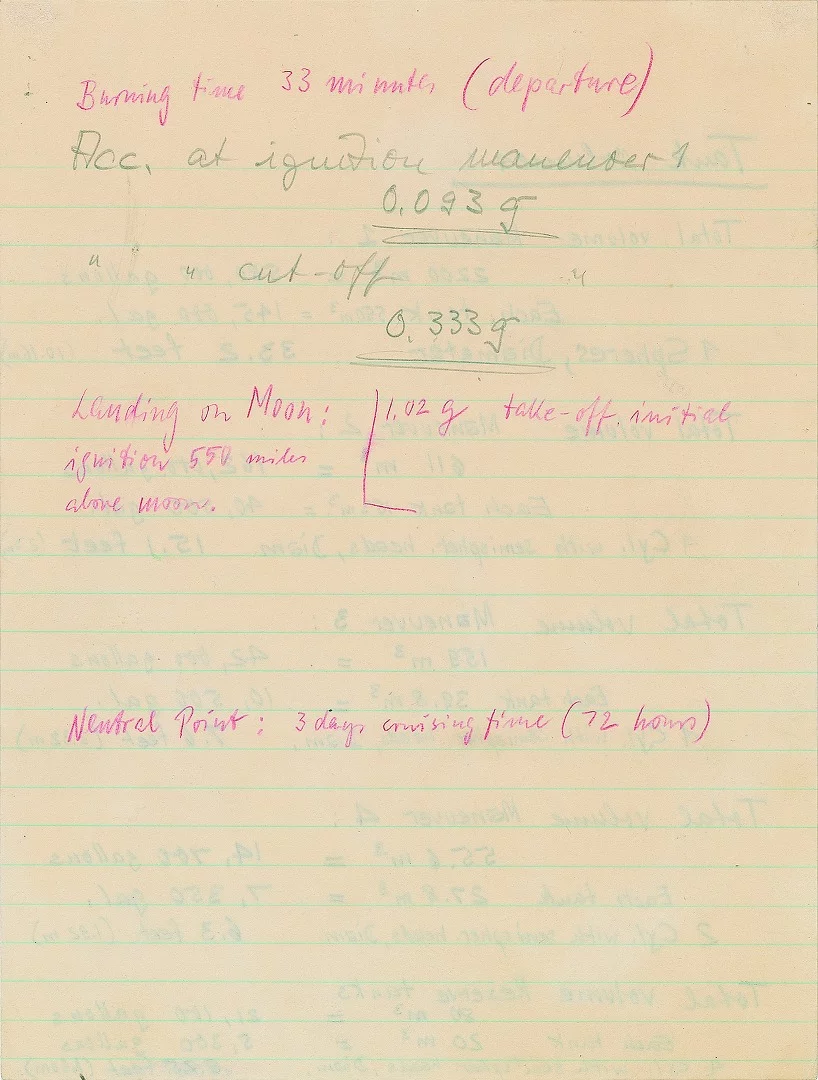 Burning time 33 minutes (departure)
Acc. at ignition maneuver 1
0.093 g
" " cut-off "
0.333 g
Landing on Moon:
ignition 550 miles
above moon.
1.02 g take-off initial
Neutral Point: 3 days cruising time (72 hours)